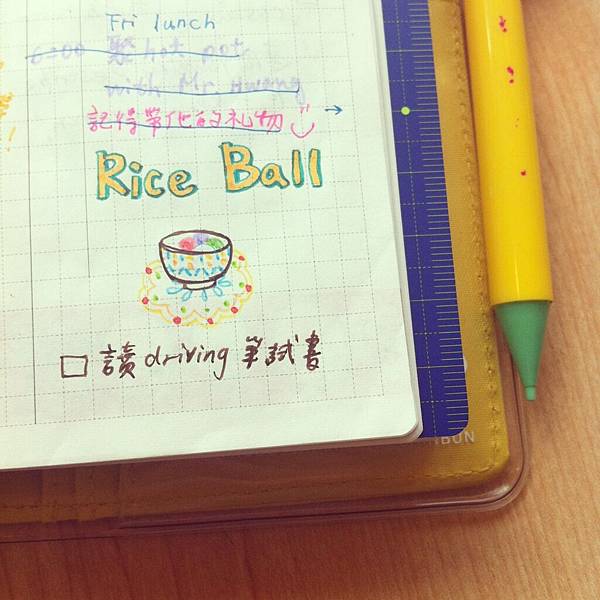 Fri lunch
6:00 聚 hot pot
with Mr. Hwang
記得帶他的礼物 →
Rice Ball
□ 讀 driving 筆試書
IBUN